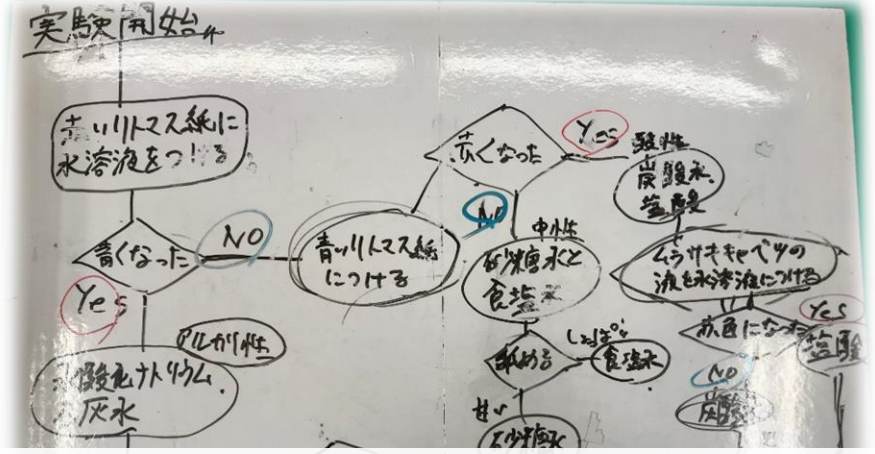 実験開始
赤いリトマス紙に
水溶液をつける
青くなった
NO
Yes
アルカリ性
水酸化ナトリウム
石灰水
青いリトマス紙
につける
赤くなった
Yes
NO
酸性
炭酸水、
塩酸
中性
砂糖水と
食塩水
舐める
しょっぱい
食塩水
甘い
砂糖水
ムラサキキャベツの
液を水溶液につける
赤色になった
Yes
塩酸
NO
炭酸